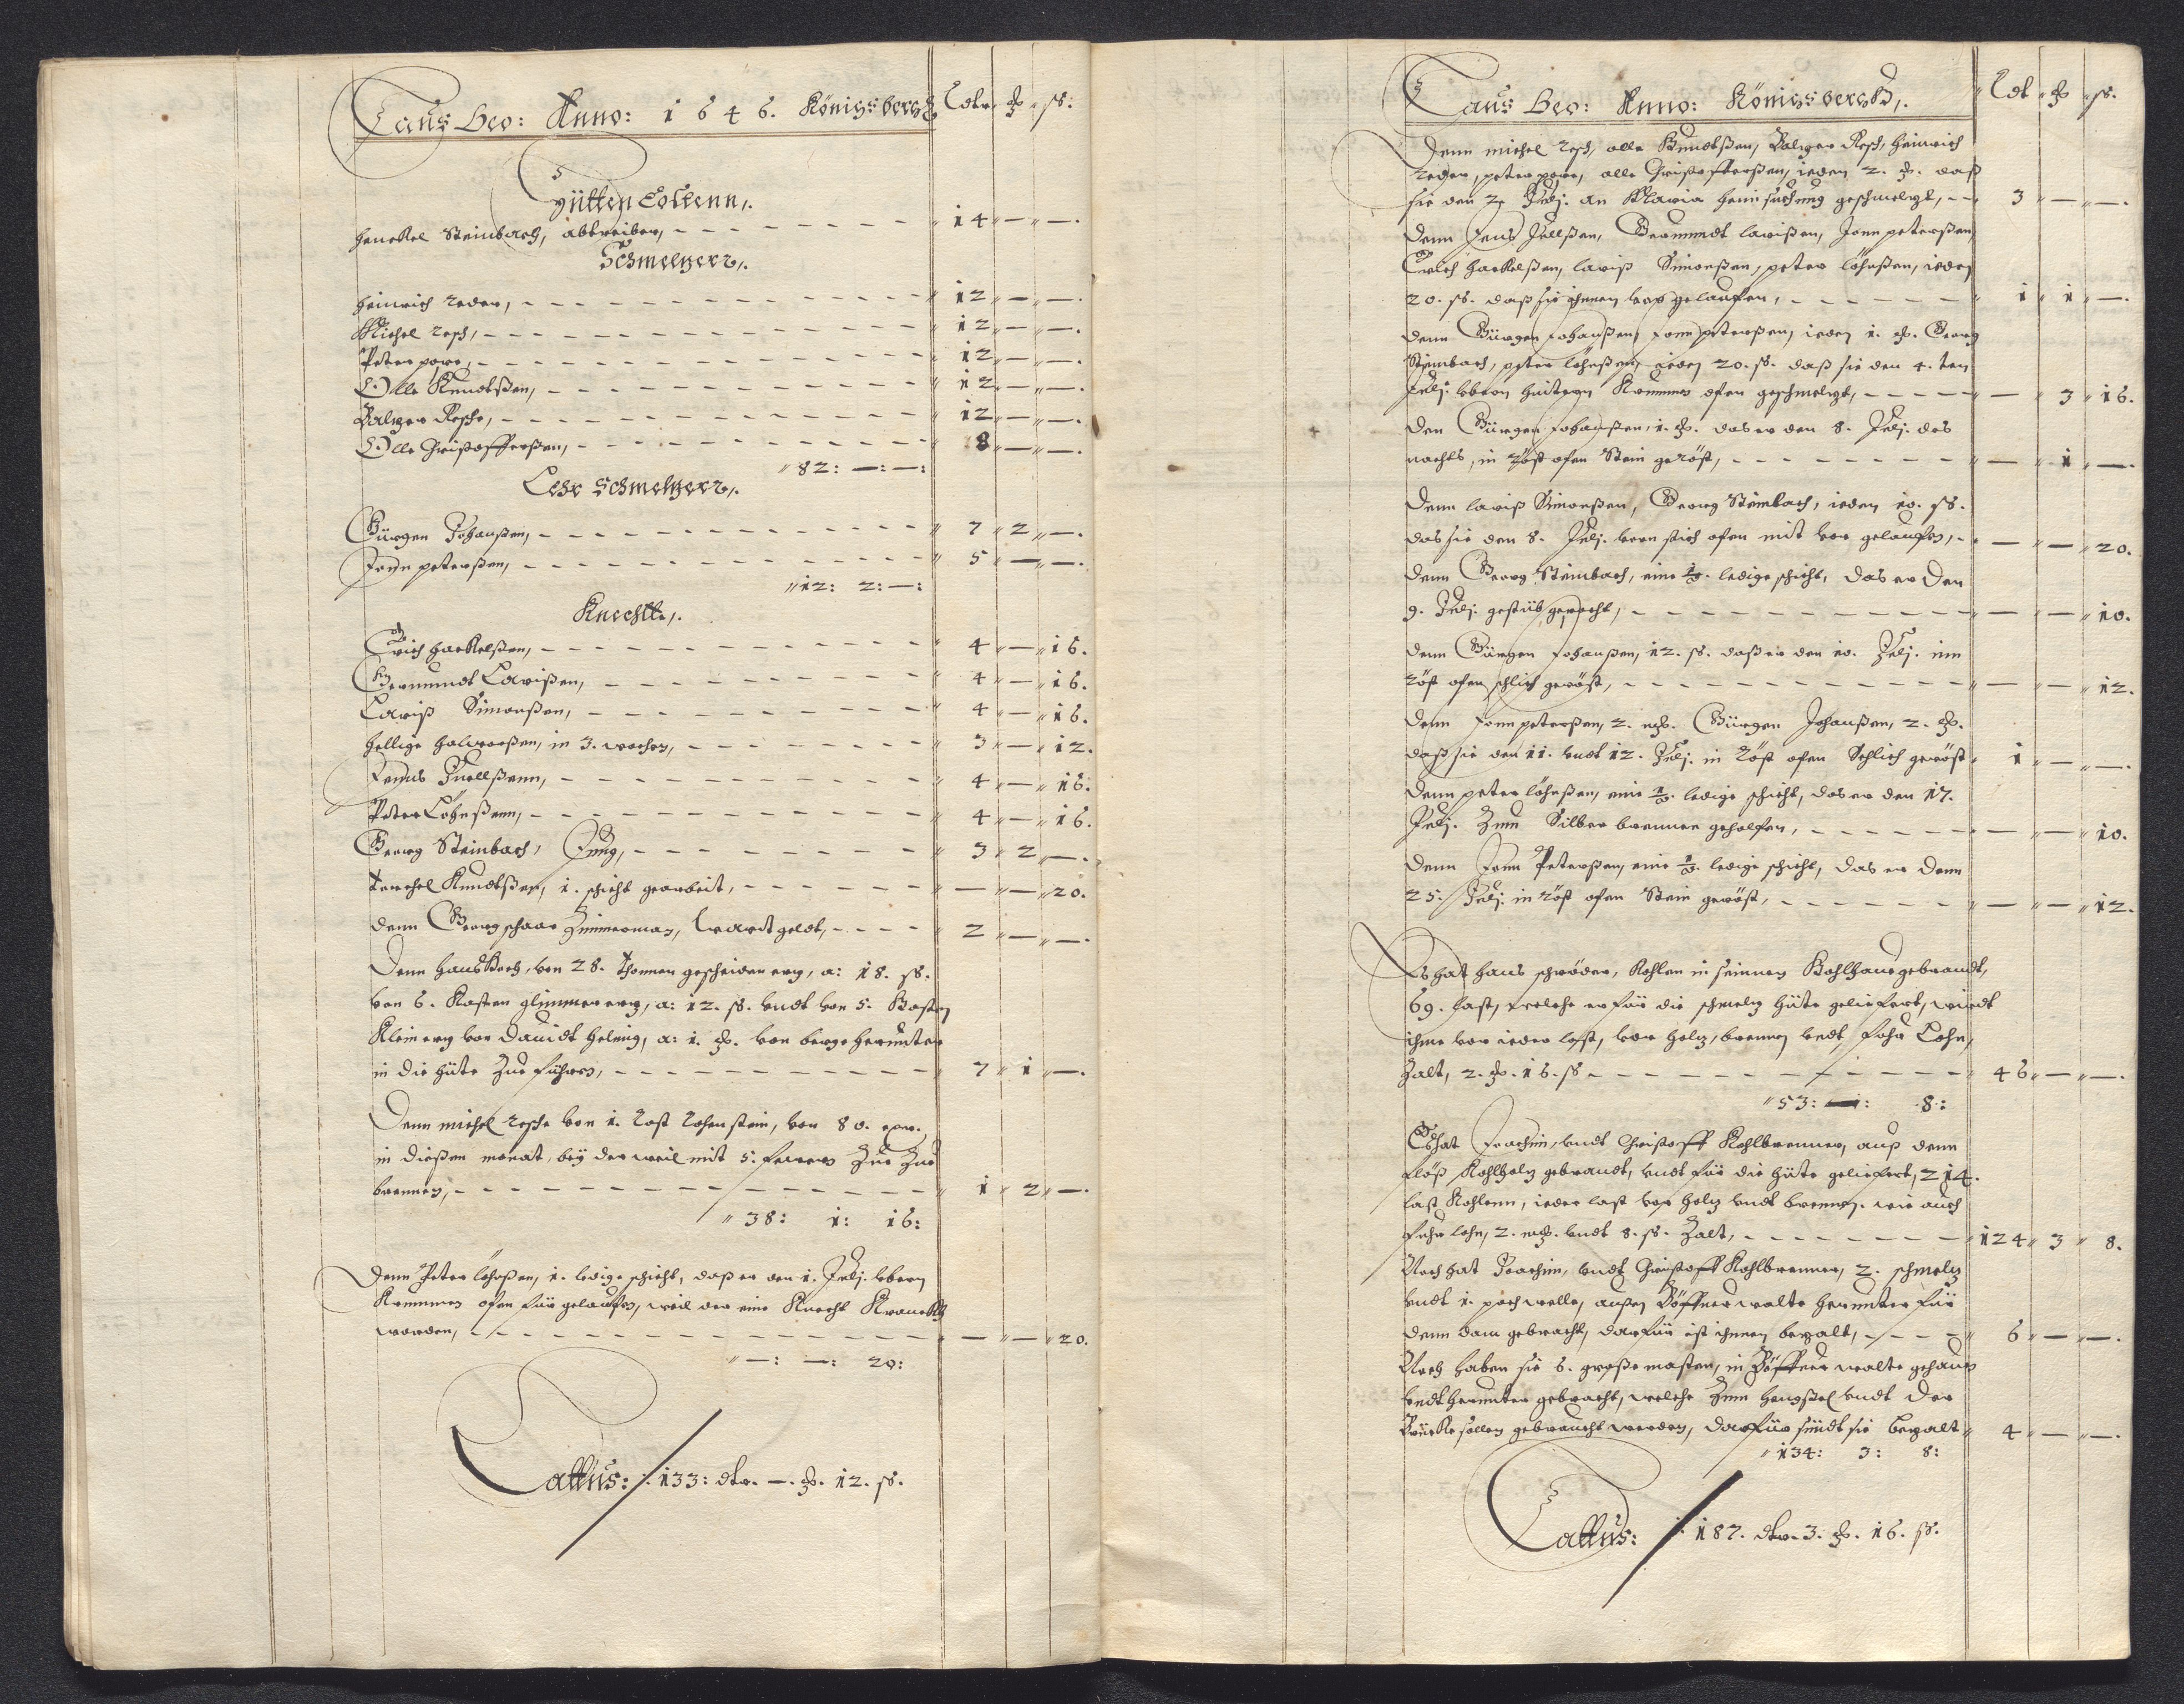 Laus Deo: Anno: 1646. Königsbergk Rdr. ℔ ß:
Hütten Costenn,.
Henckel Steinbach, abtreiber, 14 — —.
Schmeltzer,.
Heinrich Reder, 12 — —.
Michel Resch, 12 — —.
Peter pore, 12 — —.
Olle Knudtßen, 12 — —.
Baltzer Resche, 12 — —.
Olle Christofferßen, 8 — —.
82: —: —:
Lehr Schmeltzer,.
Gürgen Johanßen, 7 2 —.
Jonn peterßen, 5 — —.
12: 2: —:
Knechtte,.
Erich Hackelßen, 4 — 16.
Germundt Larißen, 4 — 16.
Lariß Simonßen, 4 — 16.
Hellige Halvorßen, in 3. wochen, 3 — 12.
Jenns Juellßenn, 4 — 16.
Peter Löhnßenn, 4 — 16.
Georg Steinbach, Jung, 3 2 —.
Terchel Knudtßen, 1. schicht gearbeit, — — 20.
Denn Georg schaar Zimmerman, wardtgeldt, 2 — —.
Denn Hans Koch, von 28. Thonnen gescheiden ertz, a: 18. ß.
von 6. Kasten glimmer ertz, a: 12. ß. vndt von 5. Kasten
Klein ertz von Dauidt Helmig, a: 1. ℔. von berge herunter
in die Hüte Zue führen, 7 1 —.
Denn Michel Resche von 1. Rost Rohenstein, von 80.
in dießen monat, bey der weil mit 5. fewren Zue Zue
brennen, 1 2 —.
38: 1: 16:
Denn Peter löhnßen, 1. ledige schicht, daß er den 1. Julj. vbern
Krummen ofen für gelauffen, weil der eine Knecht Kranckh
worden, — — 20.
—: —: 20:
Lattus: 133: dlr. —. ℔. 12. ß.
Laus Deo: Anno: Königsbergk,. Rdl ℔ ß.
Denn michel Resch, olle Knudtßen, Baltzer Resch, Heinrich
Reder, peter pore, olle Christofferßen, ieden 2. ℔. daß
sie den 2. Julj. an Maria Heimsuchung geschmeltzt, 3 — —.
Denn Jens Jullßen, Germundt larißen, Jonn peterßen,
Erich Hackelßen, lariß Simonßen, peter löhnßen, ieden
20. ß. daß sie ihnnen vor gelauffen, 1 1 —.
Denn Gürgen Johanßen, Jonn peterßen, ieden 1. ℔. Georg
Steinbach, peter löhnßen, ieden 20. ß. daß sie den 4. ten
Julj. vbern hintern Krummen ofen geschmeltzt, — 3 16.
Den Gürgen Johanßen, 1. ℔. das er den 8. Julj. des
nachts, in Röst ofen Stein geröst, — 1 —.
Denn lariß Simonßen, Georg Steinbach, ieden 10. ß.
das sie den 8. Julj. vorn stich ofen mit vor gelauffen, — — 20.
Denn Georg Steinbach, eine ½. ledige schicht, das er den
9. Julj. gestüb gemacht, — — 10.
Denn Gürgen Johanßen, 12. ß. daß er den 10. Julj. im
Röst ofen schlich geröst, — — 12.
Denn Jonn peterßen, 2. ℔. Gürgen Johanßen, 2. ℔.
daß sie den 11. vndt 12. Julj. in Röst ofen Schlich geröst 1 — —.
Denn peter löhnßen, eine ½. ledige schicht, das er den 17.
Julj. Zum Silber brennen geholffen, — — 10.
Denn Jonn Peterßen, eine ½. ledige schicht, das er denn
25. Julj. in röst ofen Stein geröst, — — 12.
Es hat Hans schröder, Kohlen in seinnen Kohlhaue gebrandt,
69. last, welche er für die schmeltz Hüte geliefert, wirdt
ihme vor ieder last, vor holtz, brennen vndt fuhr Lohn,
Zalt, 2. ℔. 16. ß 46 — —.
53: —: 8:
Es hat Joachim, vndt Christoff Kohlbrenner, auß denn
floß Kohlholtz gebrandt, vndt für die hüte geliefert, 214.
last Kohlenn, ieder last vor holtz vndt brennen. wie auch
fuhr lohn, 2. ℔. vndt 8. ß. Zalt, 124 3 8.
Noch hat Joachim, vndt Christoff Kohlbrenner, 2. schmeltz
vndt 1. poch welle, außen walte herunter für
denn dam gebracht, darfür ist ihnnen bezalt, 6 — —.
Noch haben sie 6. große masten, in walte gehauen
vndt herunter gebracht, welche Zum vndt der
Brücke sollen gebraucht werden, darfür sindt sie bezalt 4 — —.
134: 3: 8:
Lattus: 187. dlr. 3. ℔. 16. ß.